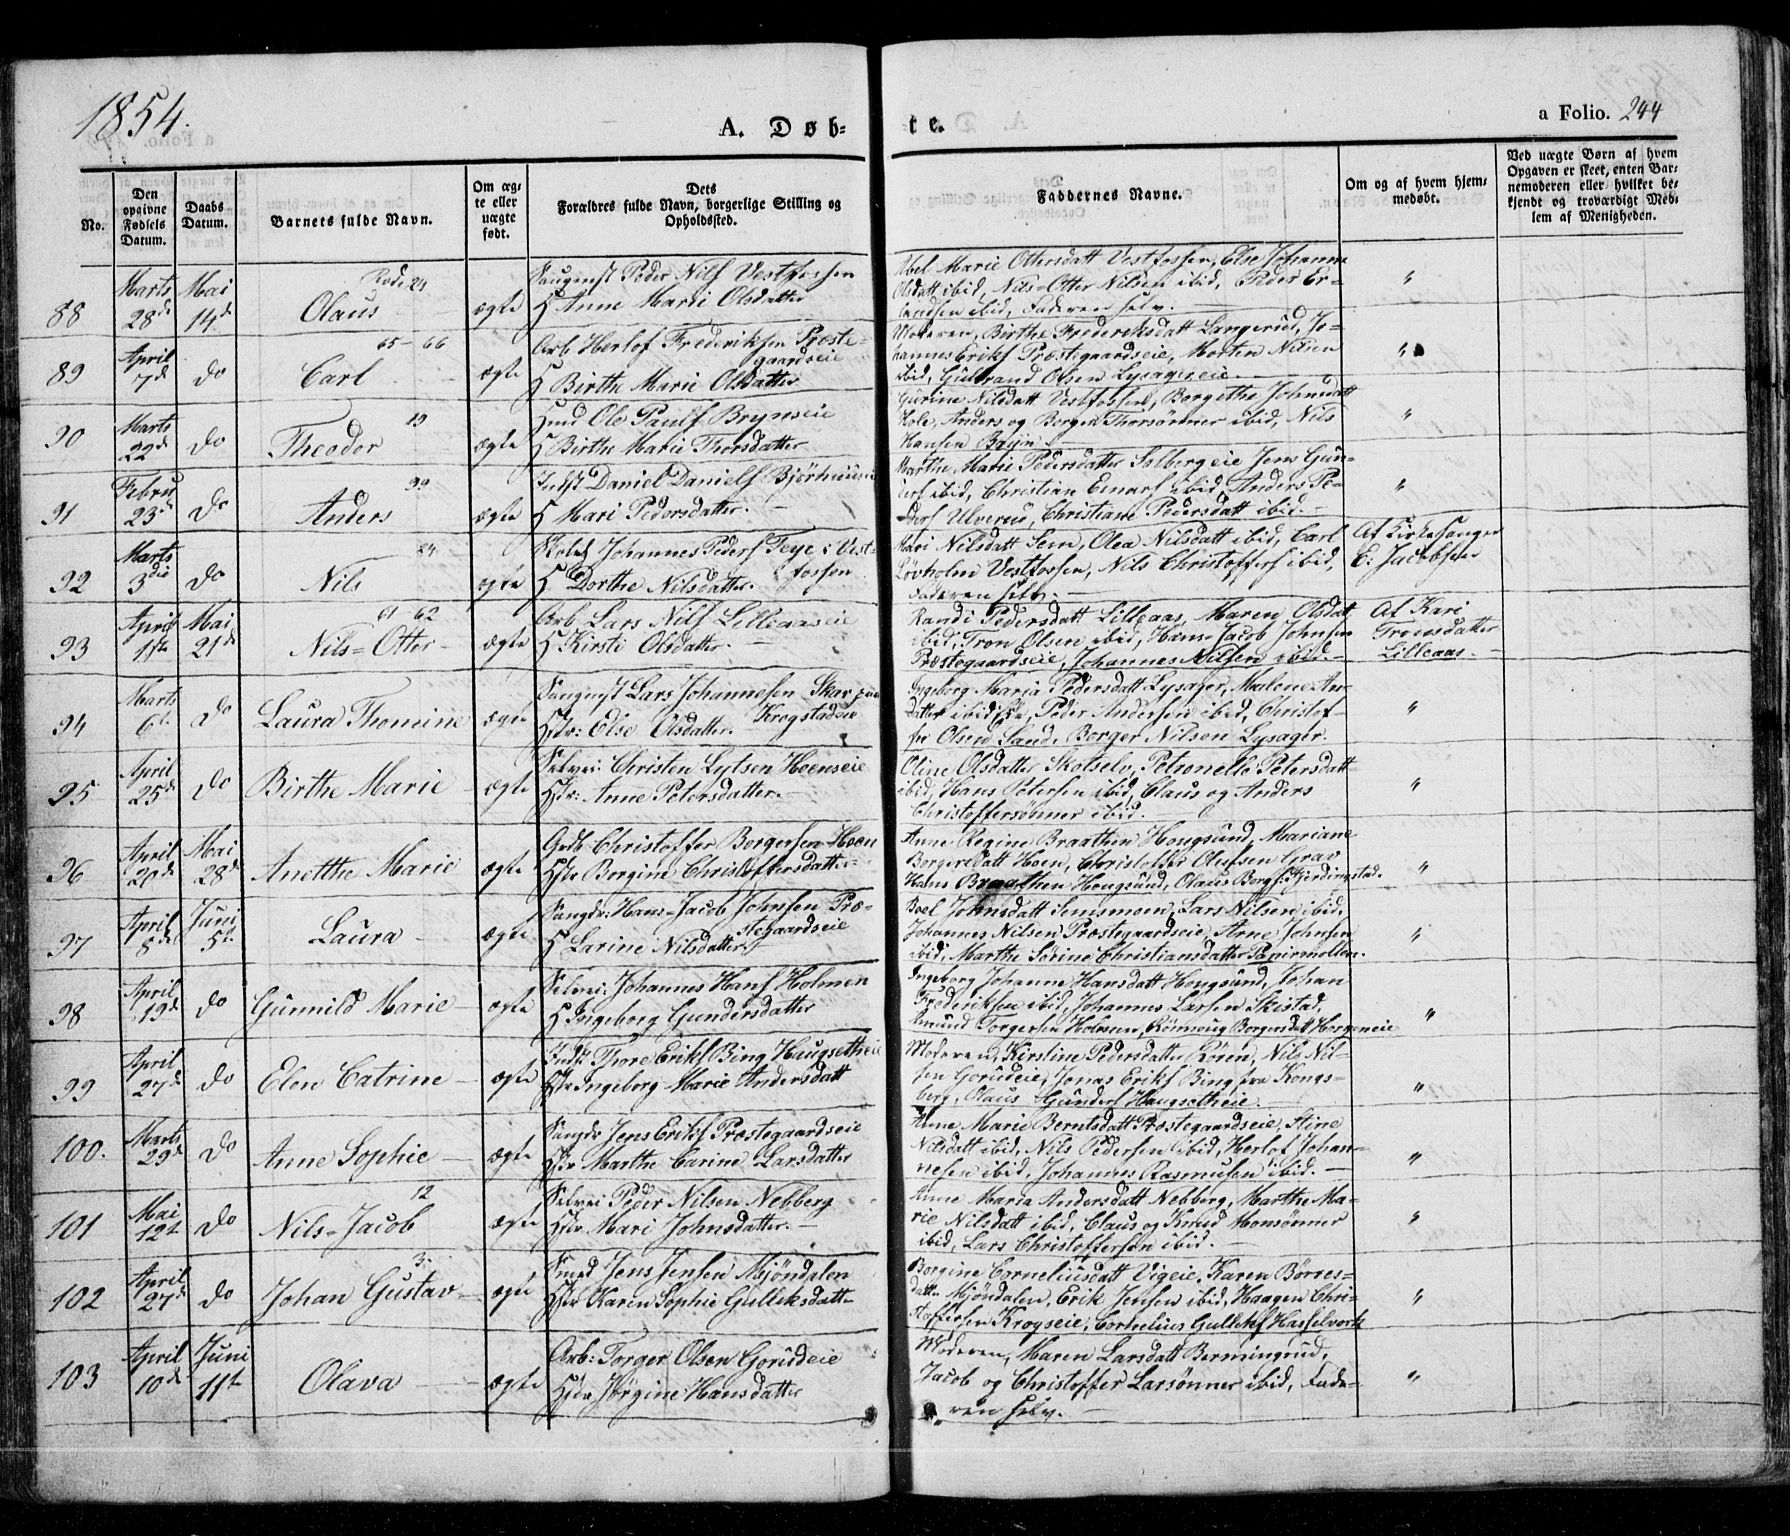 1854.
A. Døb-
te.
a Folio. 244
No.
Den opgivne Fødsels Datum.
Daabs Datum.
Barnets fulde Navn.
Om ægte eller uægte født.
Dets Forældres fulde Navn, borgerlige Stilling og Opholdssted.
Faddernes Navne.
Om og af hvem hjemmedøbt.
Ved uægte Børn af hvem Opgaven er skeet, enten Barnemoderen eller hvilket bekjendt og troværdigt Medlem af Menigheden.
88 Marts 28d Mai 14d Olaus 24 ægte
Peder Nils Vestfossen
H Anne Marie Olsdatter
Abel Marie Ottersdatt Vestfossen, Else Johanne
Olsdatt ibid, Nils-Otter Nilsen ibid, Peder Er-
landsen ibid, Faderen selv. "
89 April 7d do Carl 65-66 ægte
Arb Herlof Frederiksen Præste-
gaardseie
H Birthe Marie Olsdatter
Moderen, Birthe Frederiksdatt Langerud, Jo-
hannes Eriks Præstegaardseie, Morten Nilsen
ibid, Gulbrand Olsen Lysagereie. "
90 Marts 22d do Theodor 19 ægte
Huusmd Ole Pauls Brynseie
H Birthe Marie Thorsdatter
Gurine Nilsdatt Vestfossen, Borgethe Johnsdatt
Hole, Anders og Borger Thorsønner ibid, Nils
Hansen Bryn "
91 Febru 23d do Anders 99 ægte
Indst Daniel Daniels
H Mari Pedersdatter.
Marthe Marie Pedersdatter Solbergeie Jens Gun-
ders ibid, Christian Emars ibid, Anders Pe-
ders Ulverud, Christiane Pedersdatt ibid. "
92 Marts 3die do Nils 84 ægte
Johannes Peders Feye i Vest-
fossen
H Dorthe Nilsdatter
Mari Nilsdatt Sem, Olea Nilsdatt ibid, Carl
Løvholm Vestfossen, Nils Christoffers ibid,
Faderen selv.
Af Kirkesanger
E. Jacobsen
93 April 1ste Mai 21d Nils-Otter 61-62 ægte
Arb Lars Nils Lilleaaseie
H Kirsti Olsdatter.
Randi Pedersdatt Lilleaas, Maren Olsdat
ibid, Tron Olsen ibid, Hans-Jacob Johnsen
Præstegaardseie, Johannes Nilsen ibid.
Af Kari
Tronsdatter
Lilleaas.
94 Marts 6t do Laura Thomine ægte
Lars Johannesen
Hstr: Else Olsdatter. Krogstadeie
Ingeborg Maria Pedersdatt Lysager, Malene An-
datter ibid, Peder Andersen ibid, Christof-
fer Olsen Sand, Borger Nilsen Lysager. "
95 April 25d do Birthe Marie ægte
Selvei: Christen Hoenseie
Hstr: Anne Petersdatter.
Oline Olsdatter Skotselv, Petronelle Petersdatt
ibid, Hans Petersen ibid, Claus og Anders
Christoffersønner ibid. "
96 April 20d Mai 28d Anetthe Marie ægte
Gdb Christoffer Borgersen Hoen
Hstr Borgine Christoffersdatter
Anne Regine Braathen Hougsund, Mariane
Borgersdatt Hoen, Christoffer Olufsen Grav
Hans Braathen Hougsund, Olaus Borgs Hjerdingstad. "
97 April 8d Juni 5t Laura ægte
Hans-Jacob Johnsen Præ-
stegaardseie
H Larine Nilsdatter
Boel Johnsdatt Semsmoen, Lars Nilsen ibid,
Johannes Nilsen Præstegaardseie, Arne Johnsen
ibid, Marthe Sørine Christiansdatter Papirmøllen. "
98 April 19d do Gunnild Marie ægte
Selvei: Johannes Hans Holmen
H Ingeborg Gundersdatter
Ingeborg Johanne Hansdatt Hougsund, Johan
Frederiksen ibid, Johannes Larsen Skistad,
Amund Torgersen Holmen, Rønnaug Borgersdatt Horgeneie "
99 April 27d do Elen Catrine ægte
Indst Thore Eriks Bing Haugsetheie
Hstr Ingeborg Marie Andersdatt
Moderen, Kirstine Pedersdatter Røren, Nils Nil-
sen Gorudeie, Jonas Eriks Bing fra Kongs-
berg, Olaus Gunders Haugsetheie. "
100. Marts 29d do Anne Sophie ægte
Jens Eriks Præstegaardseie
Hstr Marthe Carine Larsdatter
Anne Marie Berntsdatt Præstegaardseie, Stine
Nilsdatt ibid, Nils Pedersen ibid, Herlof Johan-
nesen ibid, Johannes Rasmusen ibid. "
101 Mai 12t do Nils-Jacob 12 ægte
Selvei Peder Nilsen Nebberg
Hstr Mari Johnsdatter.
Anne Maria Andersdatt Nebberg, Marthe Ma-
rie Nilsdatt ibid, Claus og Knud Monsønner
ibid, Lars Christoffersen ibid. "
102 April 27d do Johan Gustav 3 ægte
Smed Jens Jensen Mjøndalen
Hstr Karen Sophie Gulliksdatt
Borgine Corneliusdatt Vigeie, Karen Børres-
datt Mjøndalen, Erik Jensen ibid, Haagen Chri-
stoffersen Krogseie, Cornelius Gulliks Hasselvork "
103 April 10d Juni 11t Olava ægte
Arb: Torger Olsen Gorudeie
Hstr Jørgine Hansdatter
Moderen, Maren Larsdatt Bermingrud,
Jacob og Christoffer Larsønner ibid, Fade-
ren selv. "